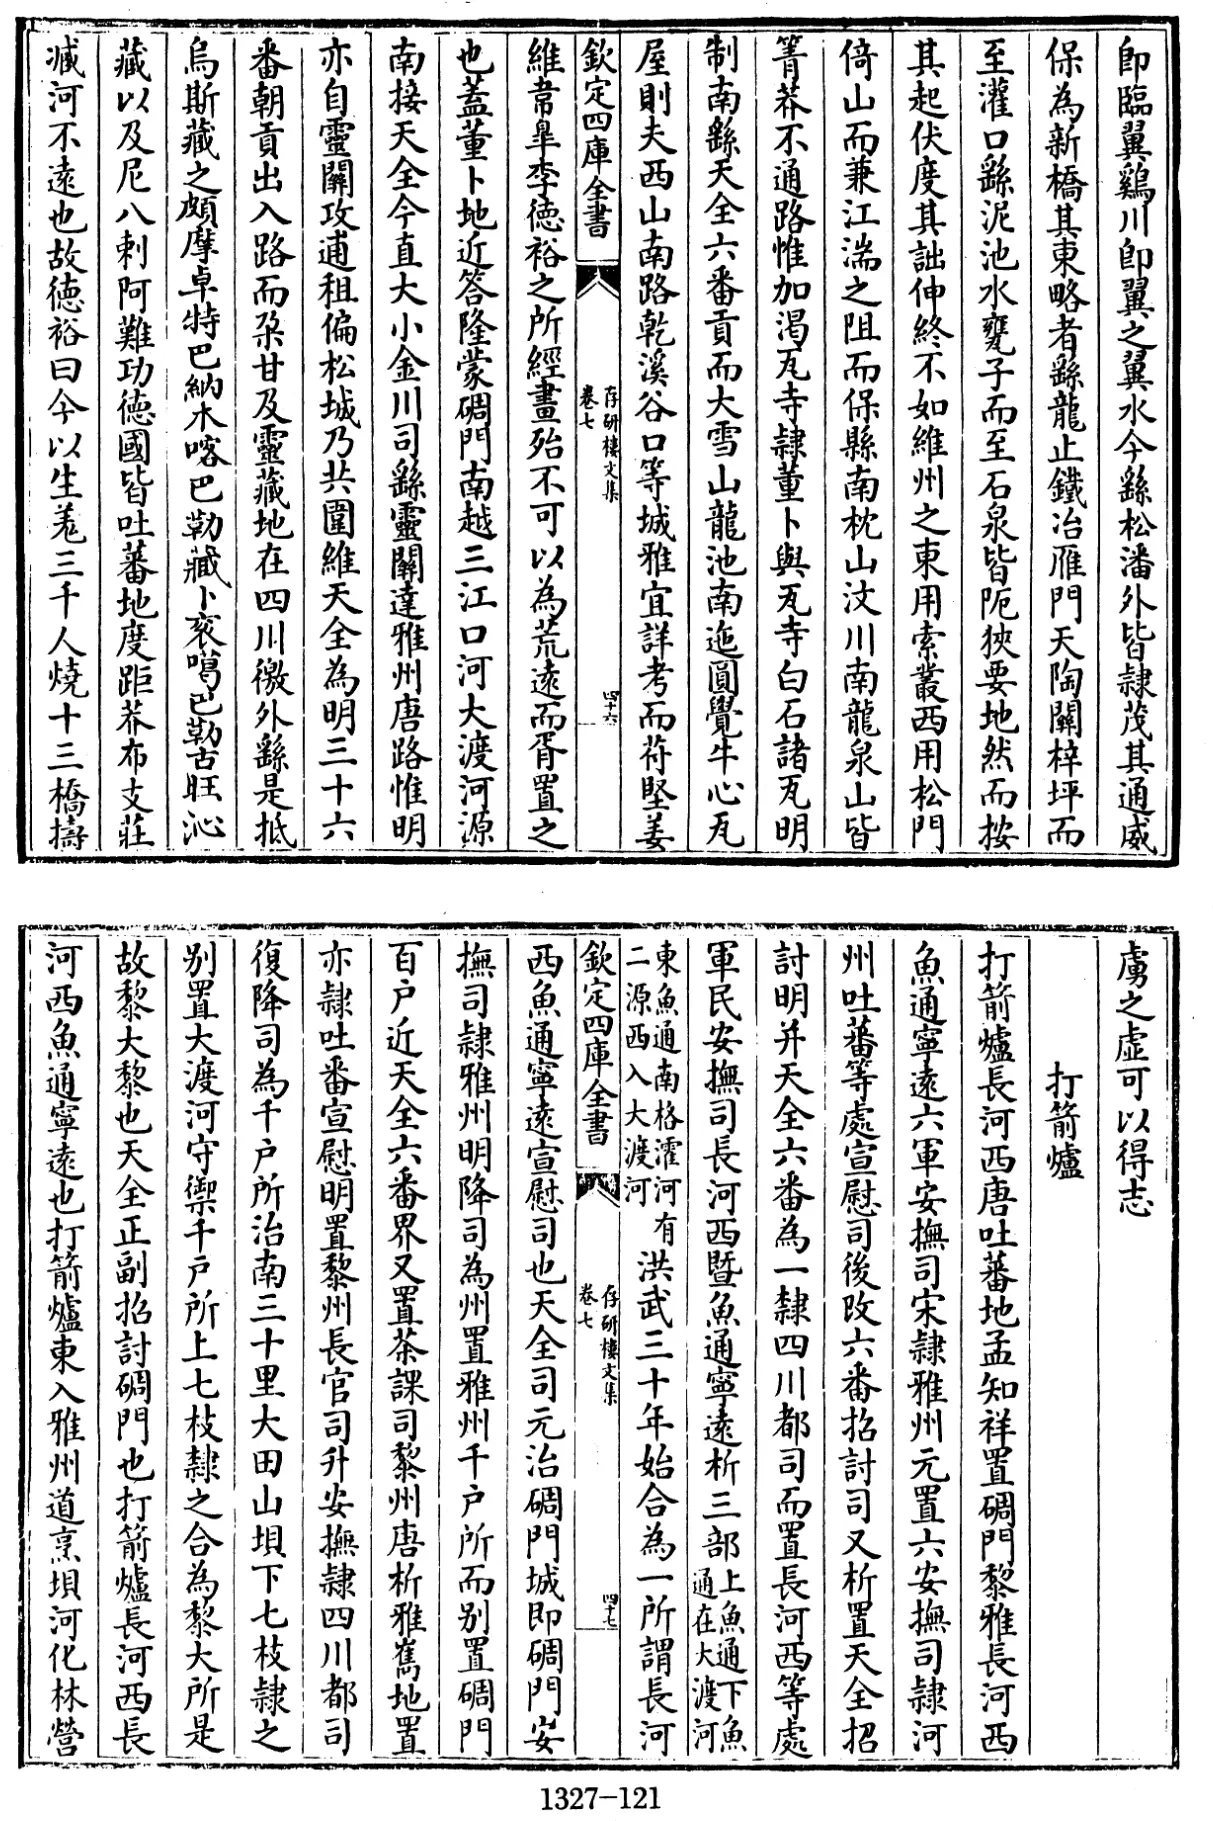 即臨翼雞川即翼之翼水今繇松潘外皆隷茂其通威
保為新橋其東略者繇龍止鐵冶雁門天陶關梓坪而
至灌口繇泥池水甕子而至石泉皆阨狹要地然而按
其起伏度其詘伸終不如維州之東用索叢西用松門
倚山而兼江湍之阻而保縣南枕山汶川南龍泉山皆
箐莽不通路惟加渴瓦寺隷董卜與瓦寺白石諸瓦明
制南繇天全六番貢而大雪山龍池南迤圓覺牛心瓦
屋則夫西山南路乾溪谷口等城雅宜詳考而苻堅姜
欽定四庫全書
存研樓文集
卷七
四十六
維韋臯李德裕之所經畫殆不可以為荒遠而胥置之
也蓋董卜地近答隆蒙碉門南越三江口河大渡河源
南接天全今直大小金川司繇靈關達雅州唐路惟明
亦自靈關攻逋租偏松城乃共圍維天全為明三十六
番朝貢出入路而朶甘及靈藏地在四川徼外繇是抵
烏斯藏之頗摩卓特巴納木喀巴勒藏卜衮噶巴勒古旺沁
藏以及尼八剌阿難功德國皆吐蕃地度距莽布支莊
臧河不遠也故德裕曰今以生羌三千人燒十三橋擣
虜之虛可以得志
打箭爐
打箭爐長河西唐吐蕃地孟知祥置碉門黎雅長河西
魚通寧遠六軍安撫司宋隷雅州元置六安撫司隷河
州吐蕃等處宣慰司後改六番招討司又析置天全招
討明并天全六番為一隷四川都司而置長河西等處
軍民安撫司長河西暨魚通寧遠析三部上魚通下魚
通在大渡河
東魚通南格灌河有
二源西入大渡河洪武三十年始合為一所謂長河
欽定四庫全書
存研樓文集
卷七
四十七
西魚通寧遠宣慰司也天全司元治碉門城即碉門安
撫司隷雅州明降司為州置雅州千户所而别置碉門
百户近天全六番界又置茶課司黎州唐析雅嶲地置
亦隷吐番宣慰明置黎州長官司升安撫隷四川都司
復降司為千户所治南三十里大田山垻下七枝隷之
别置大渡河守禦千户所上七枝隷之合為黎大所是
故黎大黎也天全正副招討碉門也打箭爐長河西長
河西魚通寧遠也打箭爐東入雅州道烹垻河化林營
1327-121